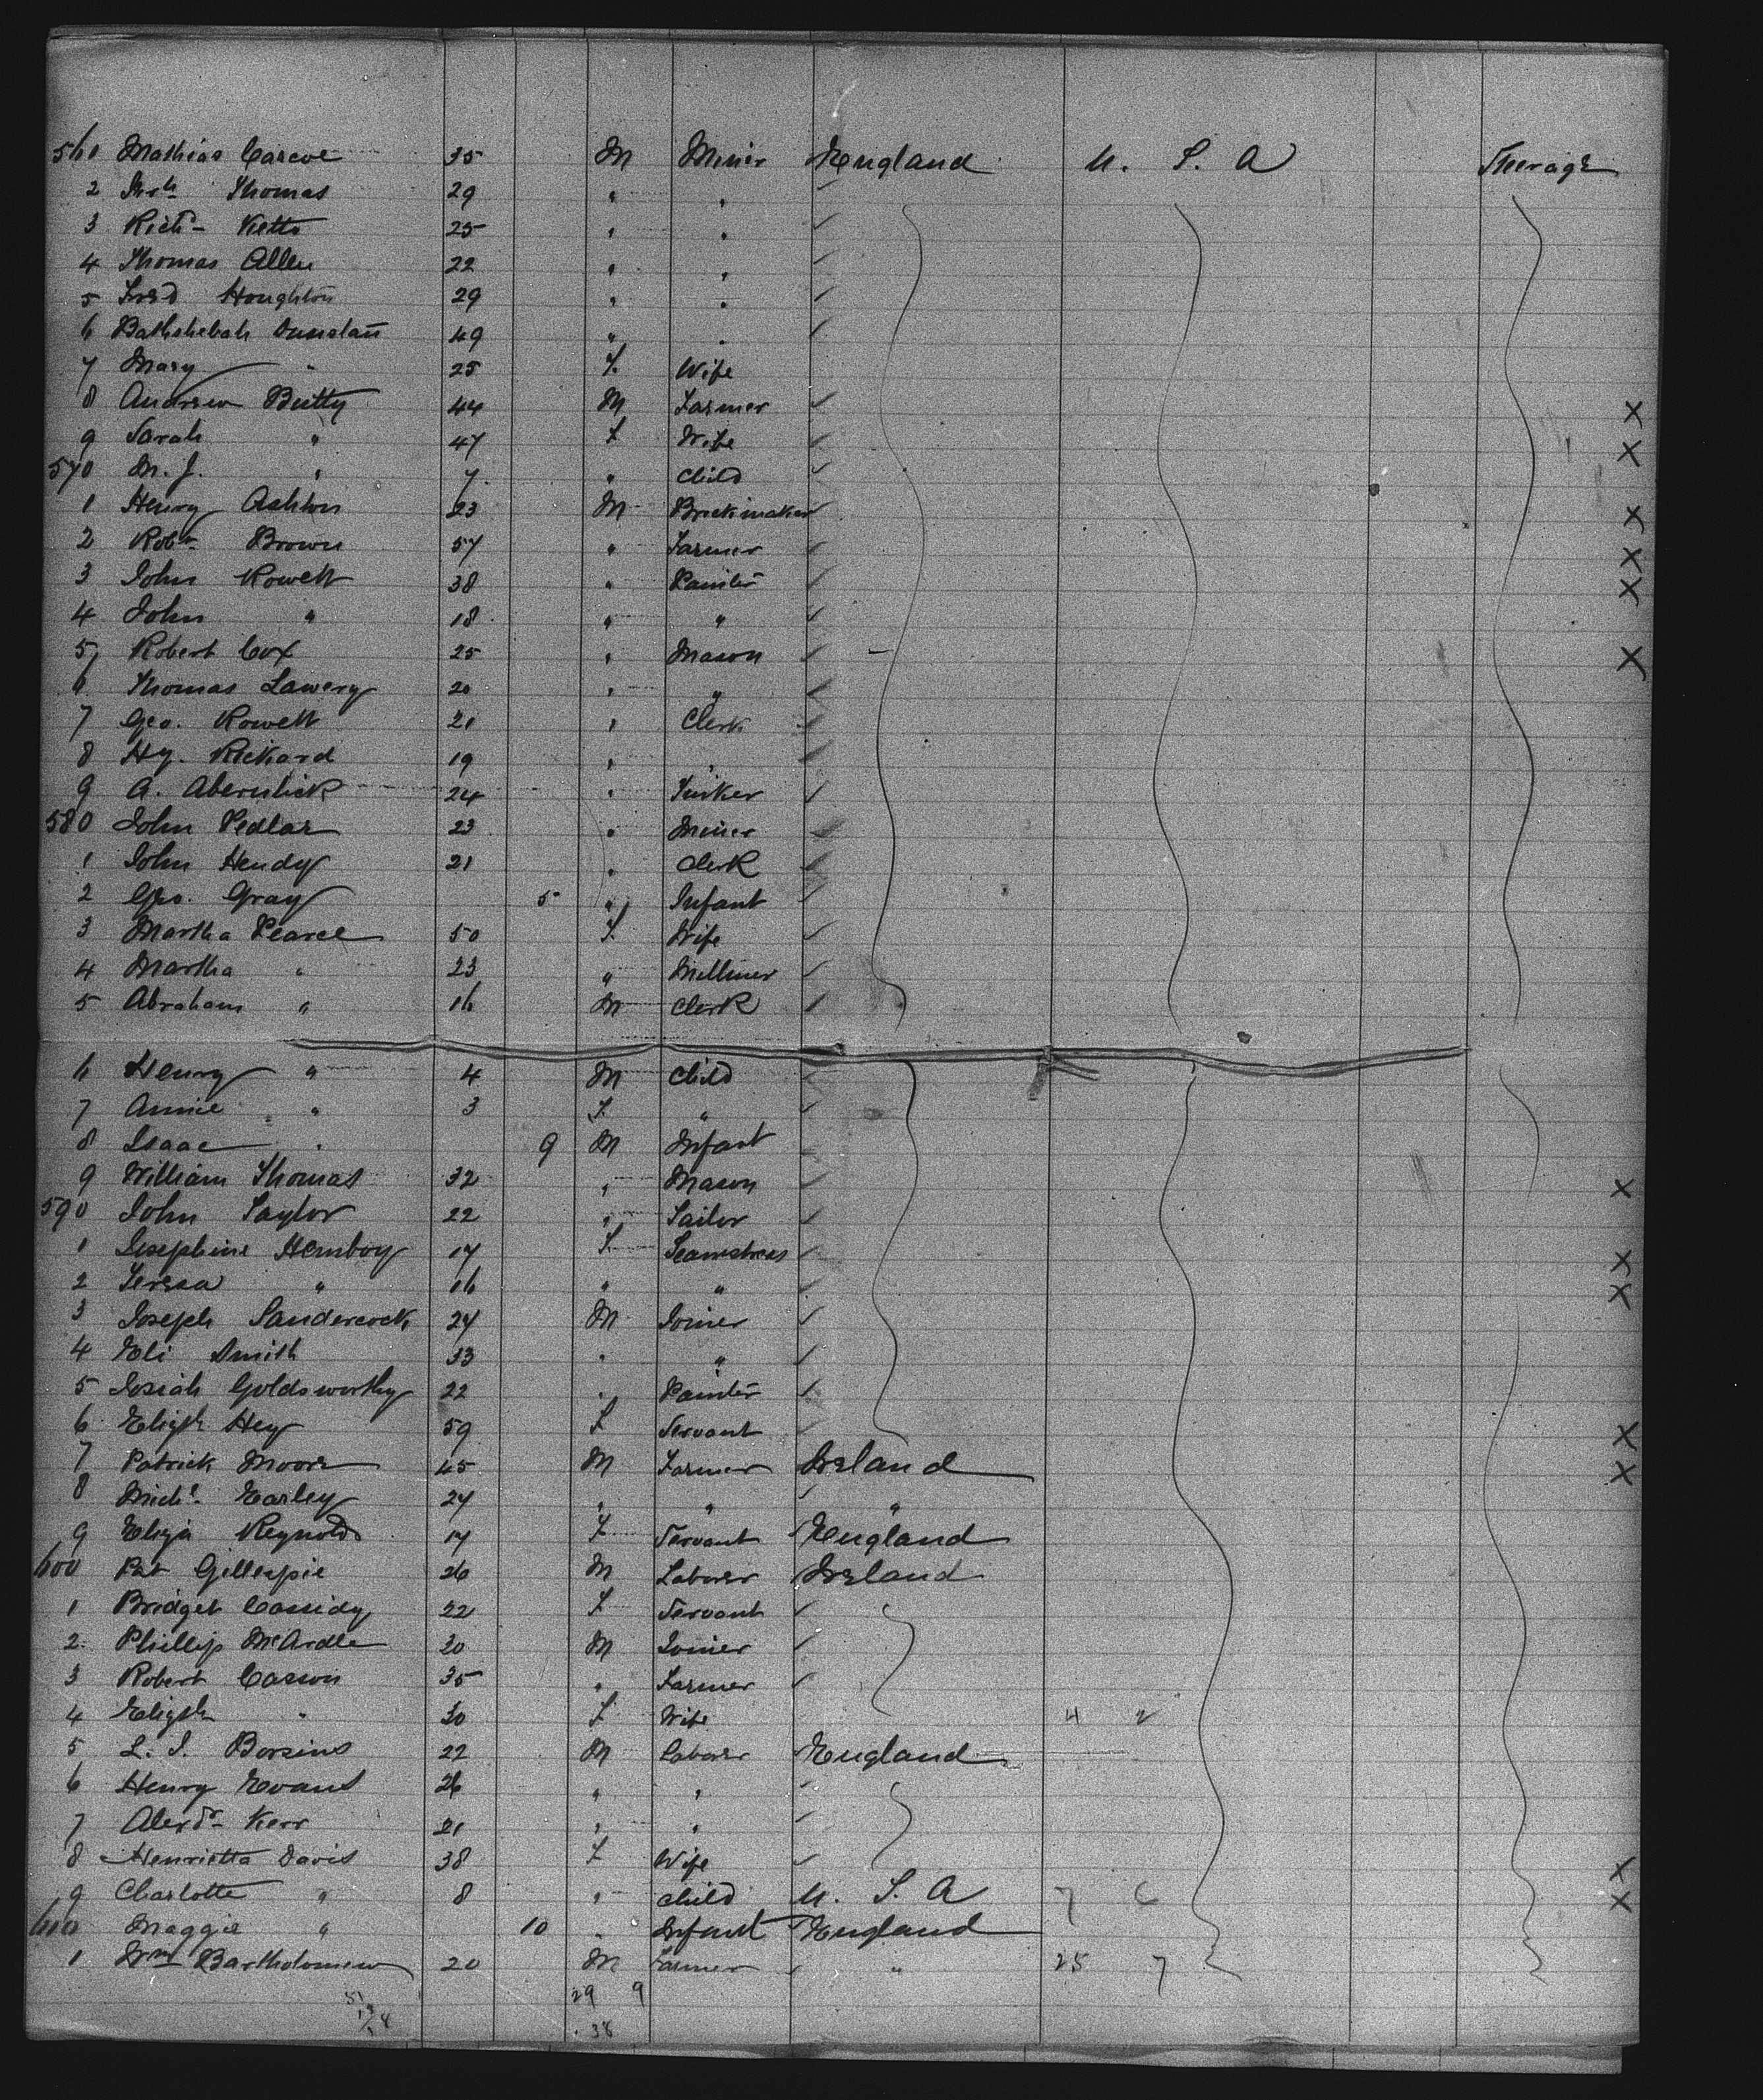 561 Mathias Carcoe 35 M Miner England U. S. A Steerage
2 Thomas 29 " "
3 Richd Ketto 25 " "
4 Thomas Allen 22 " "
5 Fred Houghton 29 " "
6 Bathshebah Dunstan 49 " "
7 Mary " 25 F. Wife
8 Andrew Butty 44 M Farmer X
9 Sarah " 47 F Wife X
570 M. J. " 7 " Child
1 Henry Ashton 23 M Brickmaker X
2 Robt Brown 57 " Farmer X
3 John Rowett 38 " Painter X
4 John " 18 " "
5 Robert Cox 25 " Mason X
6 Thomas Lawery 20 " "
7 Geo. Rowett 21 " Clerk
8 Hy. Rickard 19 " "
9 A. 24 "
580 John Pedlar 23 " Miner
1 John Hendy 21 " Clerk
2 Geo. Gray 5 " Infant
3 Martha Pearce 50 F. Wife
4 Martha " 23 " Milliner
5 Abraham " 16 M Clerk
6 Henry " 4 M Child
7 Annie " 3 F. "
8 Isaac " 9 M Infant
9 William Thomas 32 " Mason X
590 John Taylor 22 " Tailor
1 Josephine Hemboy 17 F. Seamstress X
2 Teresa " 16 " " X
3 Joseph Sandercock 24 M Joiner
4 Eli Smith 33 " "
5 Josiah Goldsworthy 22 " Painter
6 Elizth Hey 59 F Servant X
7 Patrick Moore 45 M Farmer Ireland X
8 Michl Earley 24 " " "
9 Eliza Reynolds 17 F Servant England
600 Pat Gillespie 26 M Laborer Ireland
1 Bridget Cassidy 22 F Servant
2 Phillip McArdle 30 M Joiner
3 Robert Casson 35 " Farmer
4 Elizth " 30 F Wife 4 2
5 L. J. 22 M Laborer England
6 Henry Evans 26 " "
7 Alexdr Kerr 21 " "
8 Henrietta Davis 38 F Wife X
9 Charlotte " 8 " Child U. S. A 7 6 X
610 Maggie " 10 " Infant England
1 Wm Bartholomew 20 M Farmer " 25 7
29 9
38